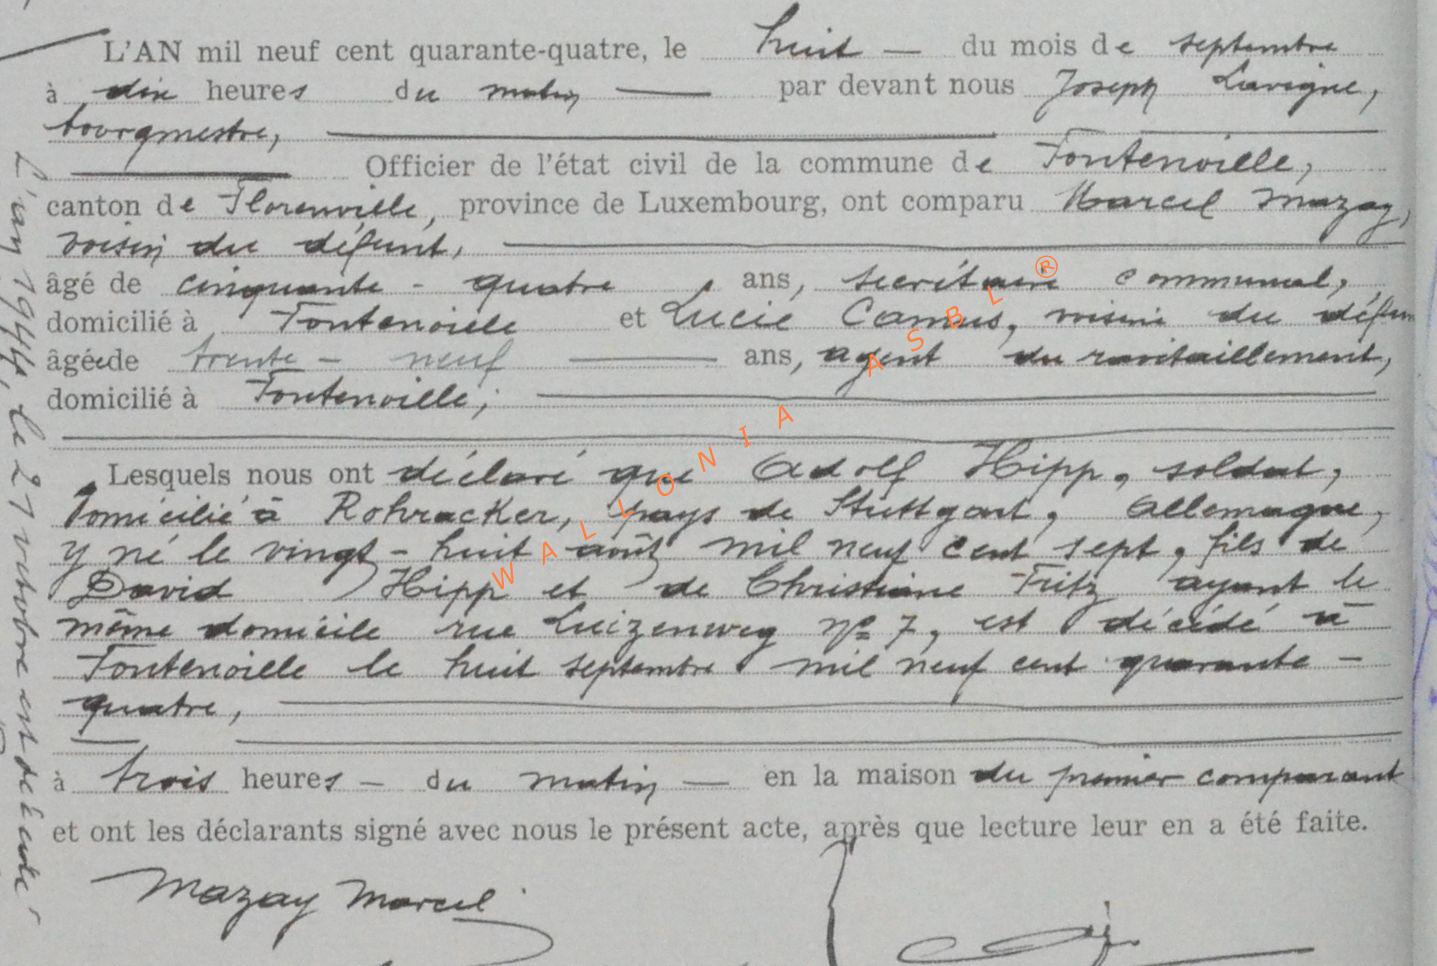 L'AN mil neuf cent quarante-quatre, le huit — du mois de septembre
à dix heures du matin — par devant nous Joseph Lavigne,
bourgmestre,
Officier de l'état civil de la commune de Fontenoille,
canton de Florenville, province de Luxembourg, ont comparu Marcel Mazay,
voisin du défunt,
âgé de cinquante - quatre ans, secrétaire communal,
domicilié à Fontenoille et Lucie Camus, voisine du défunt
âgée de trente - neuf ans, agent du ravitaillement,
domicilié à Fontenoille;
Lesquels nous ont déclaré que Adolf Hipp, soldat,
domicilié à Rohracker, pays de Stuttgart, Allemagne,
y né le vingt - huit août mil neuf cent sept, fils de
David Hipp et de Christiane Fritz ayant le
même domicile rue Luizenweg n° 7, est décédé à
Fontenoille le huit septembre mil neuf cent quarante -
quatre,
à trois heures — du matin — en la maison du premier comparant
et ont les déclarants signé avec nous le présent acte, après que lecture leur en a été faite.
Mazay Marcel
L'an 1944, le 27 octobre est décédé
WALLONIA ASBL ®